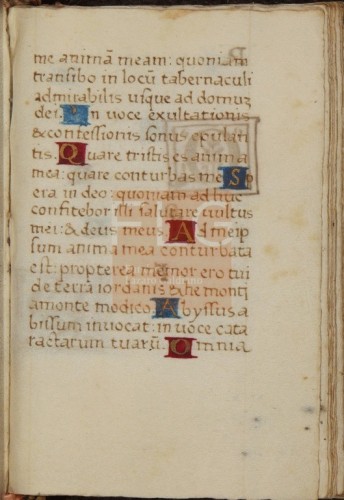 me animā meam: quoniam
transibo in locū tabernaculi
admirabilis usque ad domuz
dei. In voce exultationis
& confessionis sonus epulan
tis. Quare tristis es anima
mea: quare conturbas me Sp
era in deo: quoniam ad huc
confitebor illi salutare vultus
mei: & deus meus. Ad meip
sum anima mea conturbata
est: propterea memor ero tui
de terra iordanis & hermonii
amonte modico. Abyssus a
bissum invocat: in voce cata
ractarum tuarū. Omnia